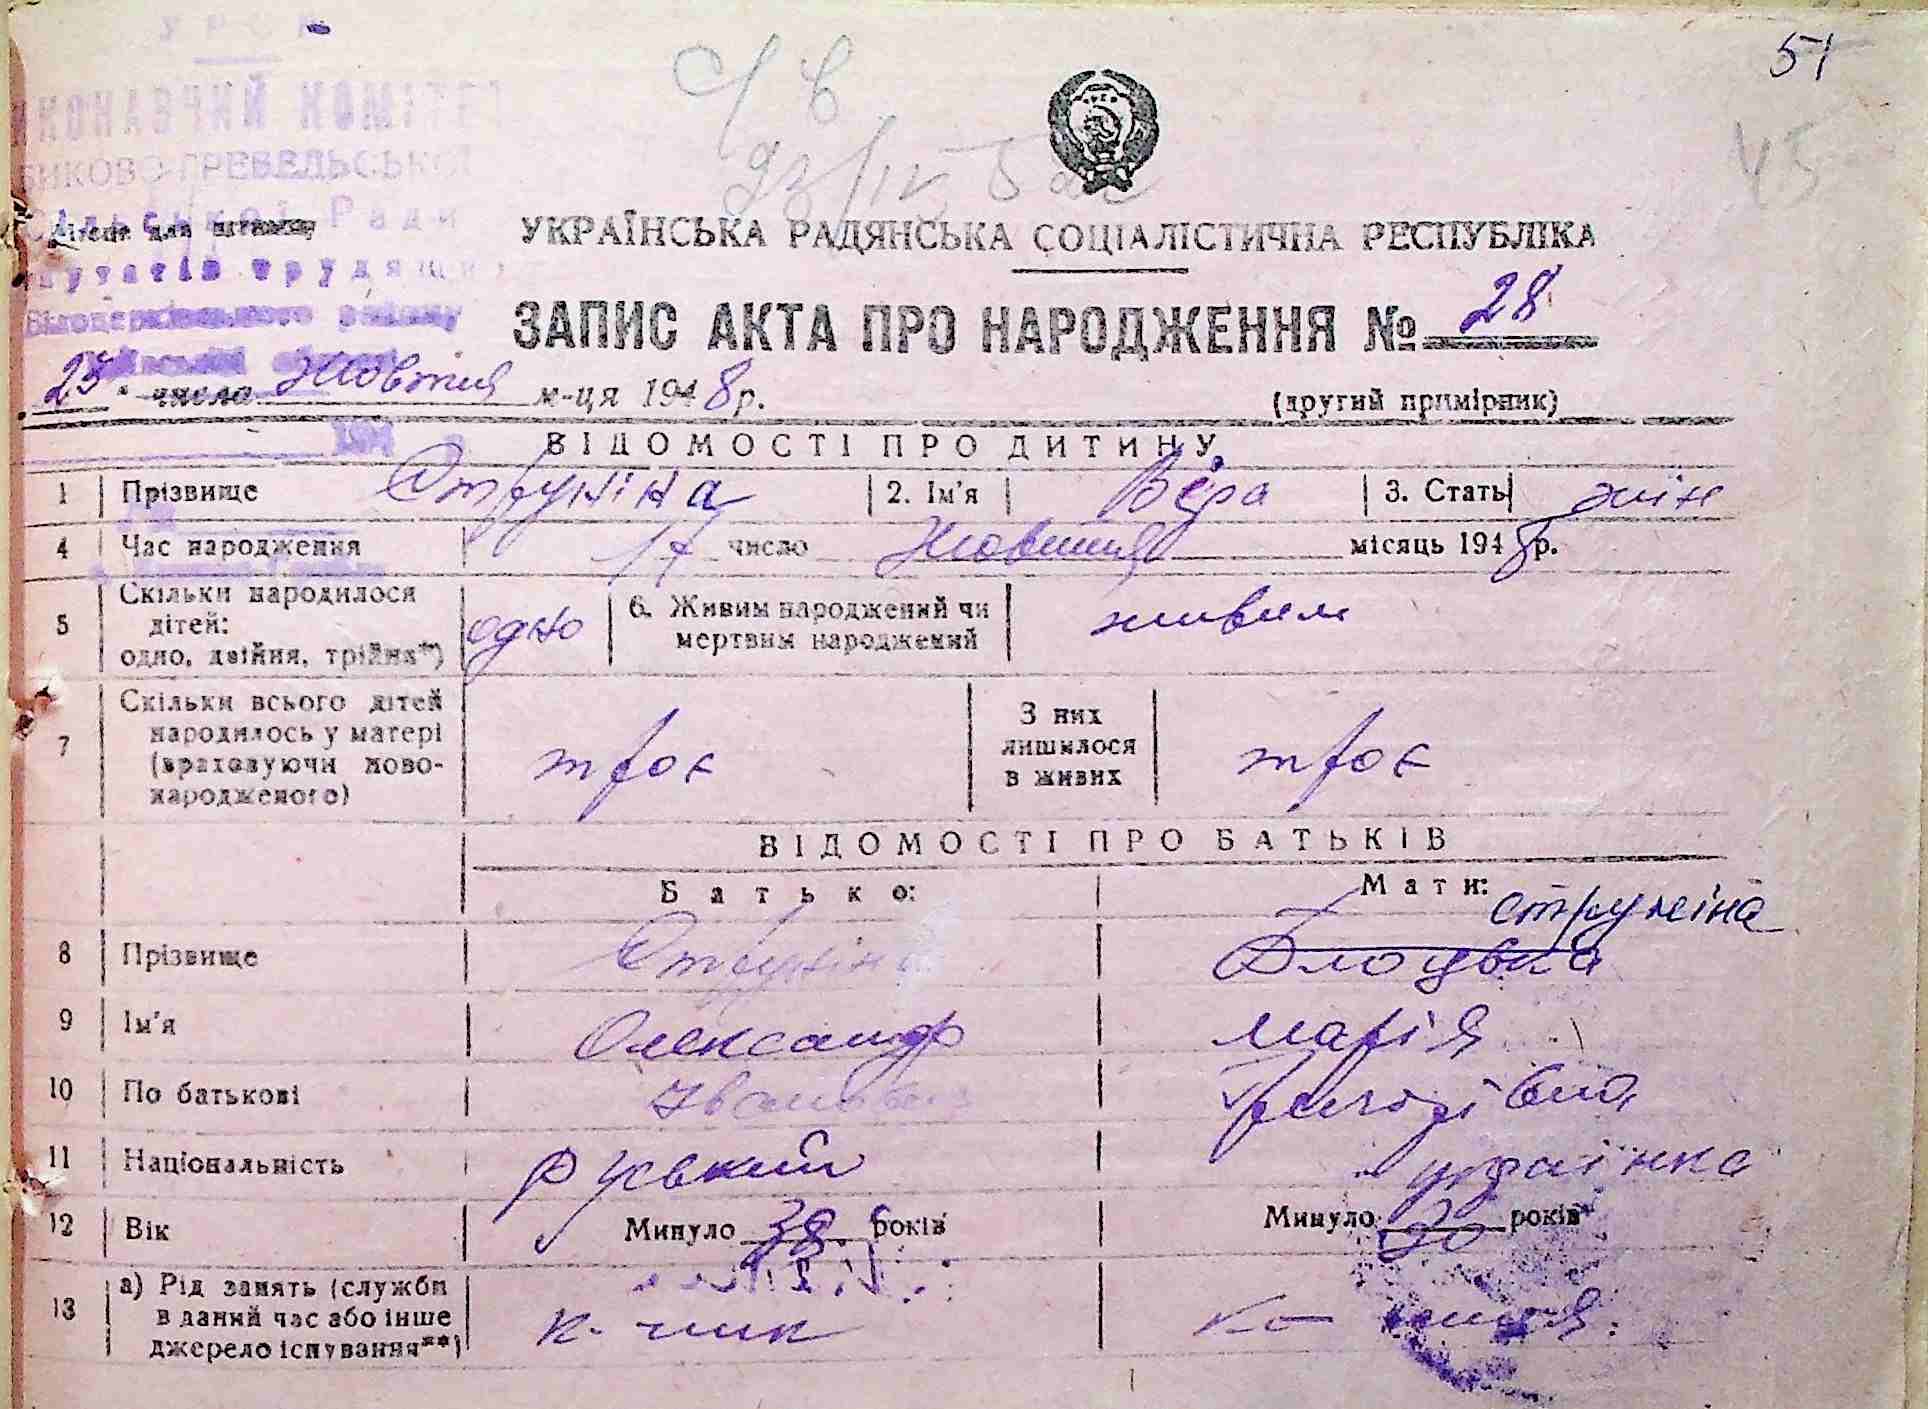 51
45
КОНАВЧИЙ КОМІТЕТ
БИКОВО-ГРЕБЕЛЬСЬКОЇ
сільської Ради
Місце для штампу
депутатів трудящих
Білоцерківського району
Київської області
УКРАЇНСЬКА РАДЯНСЬКА СОЦІАЛІСТИЧНА РЕСПУБЛІКА
ЗАПИС АКТА ПРО НАРОДЖЕННЯ № 28
25 числа Жовтня м-ця 1948 р.
(другий примірник)
ВІДОМОСТІ ПРО ДИТИНУ
1 Прізвище Струніна 2. Ім'я Вера 3. Стать жін
4 Час народження 17 число Жовтня місяць 1948 р.
5 Скільки народилося дітей: одно, двійня, трійня*) одно 6. Живим народжений чи мертвим народжений живим
7 Скільки всього дітей народилось у матері (враховуючи новонародженого) троє З них лишилося в живих троє
ВІДОМОСТІ ПРО БАТЬКІВ
Батько: Мати:
струніна
8 Прізвище Струнін
9 Ім'я Олександр Марія
10 По батькові Іванович
11 Національність Руський українка
12 Вік Минуло 38 років Минуло 30 років
13 а) Рід занять (служби в даний час або інше джерело існування**) к-ник